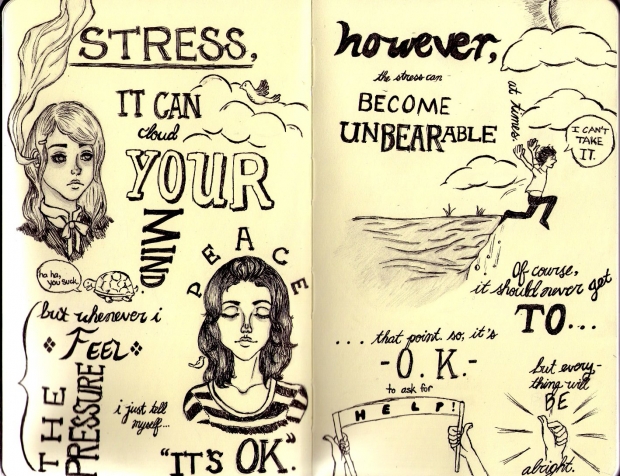 STRESS,
IT CAN
cloud
YOUR
MIND.
ha ha,
you suck.
PEACE
but whenever i
FEEL
THE
PRESSURE
i just tell
myself...
"IT'S OK".
however,
the stress can
BECOME
UNBEARABLE
at times.
I CAN'T
TAKE
IT.
Of course,
it should never get
TO...
... that point. so, it's
-O.K.-
to ask for
HELP!
but every-
thing will
BE
alright.